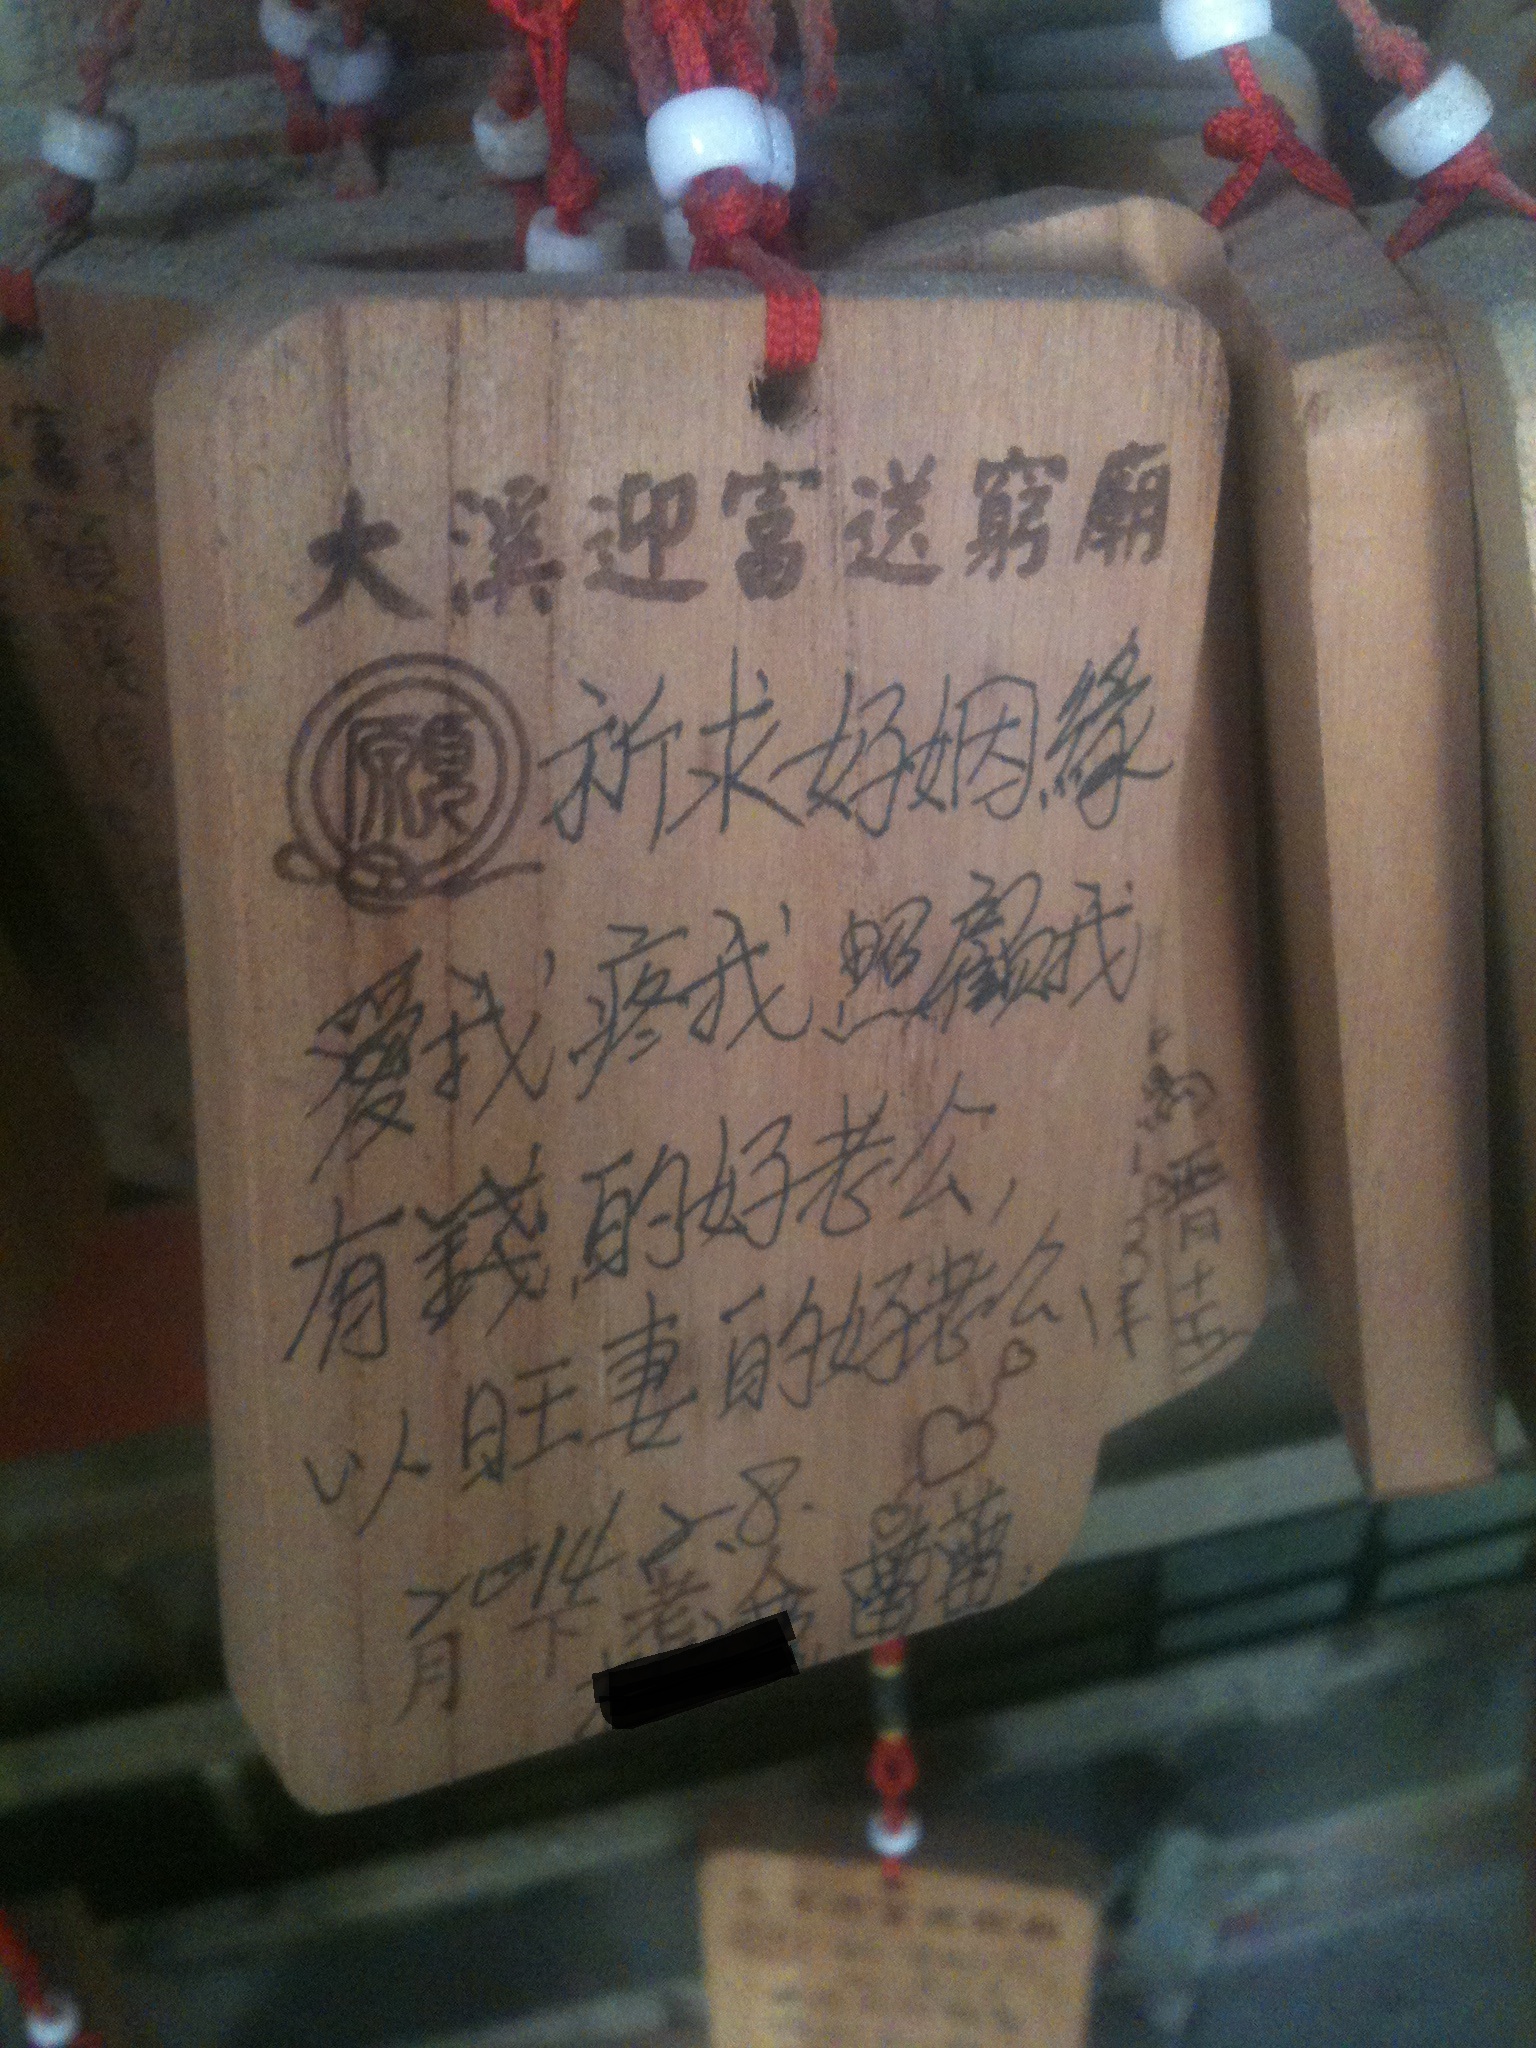 大溪迎富送窮廟
願
祈求好姻緣
愛我疼我照顧我
有錢的好老公,
以旺妻的好老公,
2014.2.8.
月下老人
蕾蕾